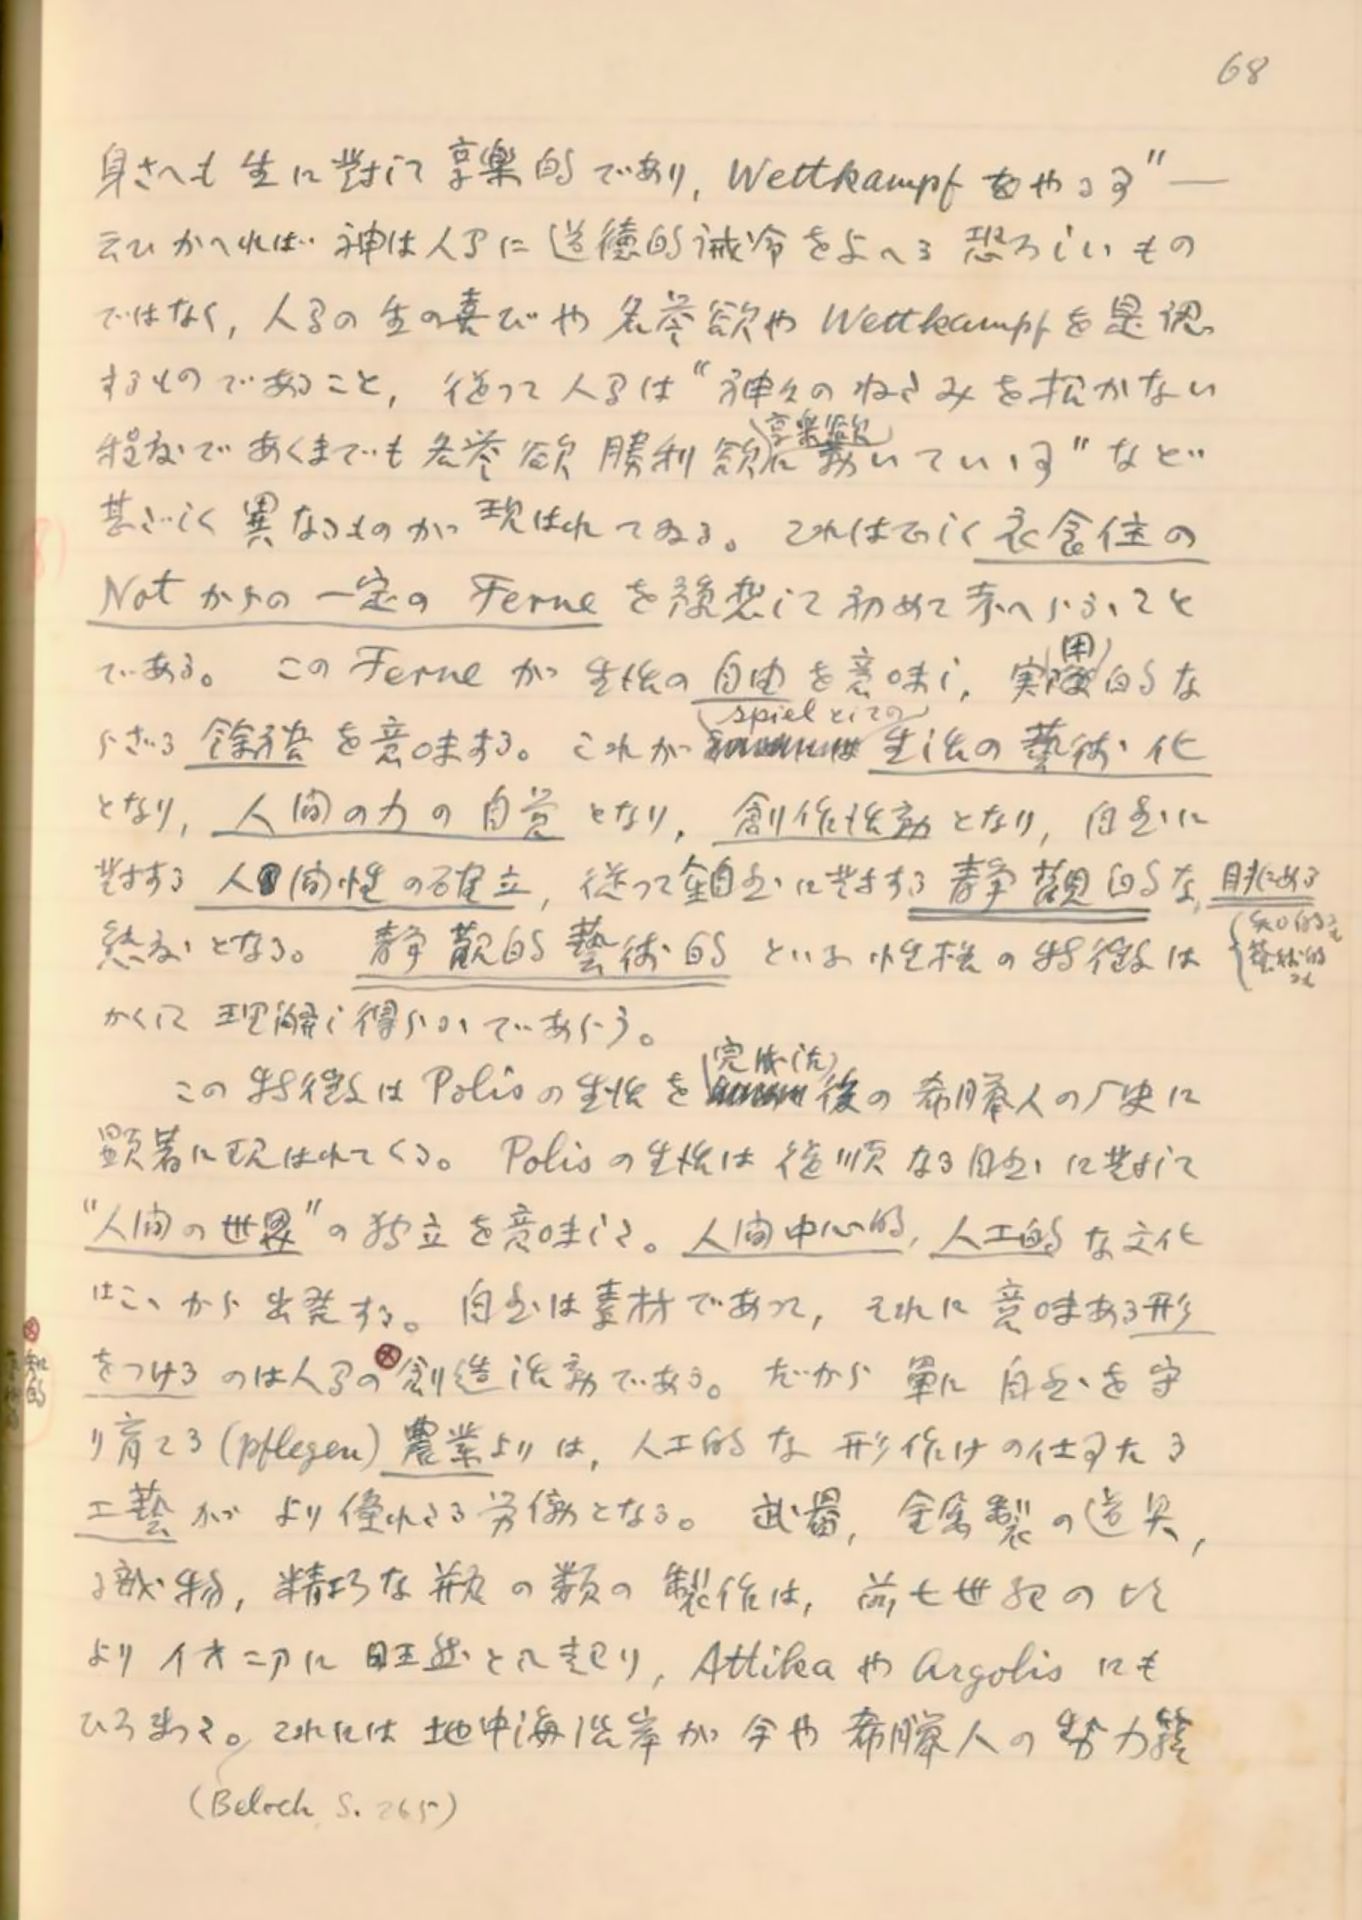 68
身さへも生に対して享楽的であり, Wettkampf をやる" —
云ひかへれば 神は人間に道徳的誡令を与へる恐ろしいもの
ではなく, 人間の生の喜びや名誉欲や Wettkampf を是認
するものであること, 従って人間は "神々のねたみを招かない
程度であくまでも名誉欲 勝利欲 享楽欲に動いている" など
甚だしく異なるものが現はれてゐる。これは正しく衣食住の
Not からの一定の Ferne を予想して初めて考へらるゝこと
である。 この Ferne が生活の自由を意味し, 実用的な
らざる餘裕を意味する。これが Spiel としての 生活の藝術化
となり, 人間の力の自覚となり, 創作活動となり, 自然に
対する人間性の確立, 従って自然に対する静観的な,
態度となる。 静観的藝術的といふ性格の特徴は
かくして理解し得らるゝであらう。
この特徴は Polis の生活を完成した後の希臘人の歴史に
顕著に現はれてくる。 Polis の生活は従順なる自然に対して
"人間の世界" の独立を意味した。人間中心的, 人工的な文化
はこゝから出発する。 自然は素材であって, それに意味ある形
をつけるのは人間の創造活動である。だから単に自然を守
り育てる (pflegen) 農業よりは, 人工的な形作りの仕事たる
工藝がより優れたる労働となる。 武器, 金属製の道具,
織物, 精巧な瓶の類の製作は, 前七世紀の頃
よりイオニアに旺然として起り, Attika や Argolis にも
ひろまった。これには地中海沿岸が今や希臘人の勢力範
(Beloch, S. 265)